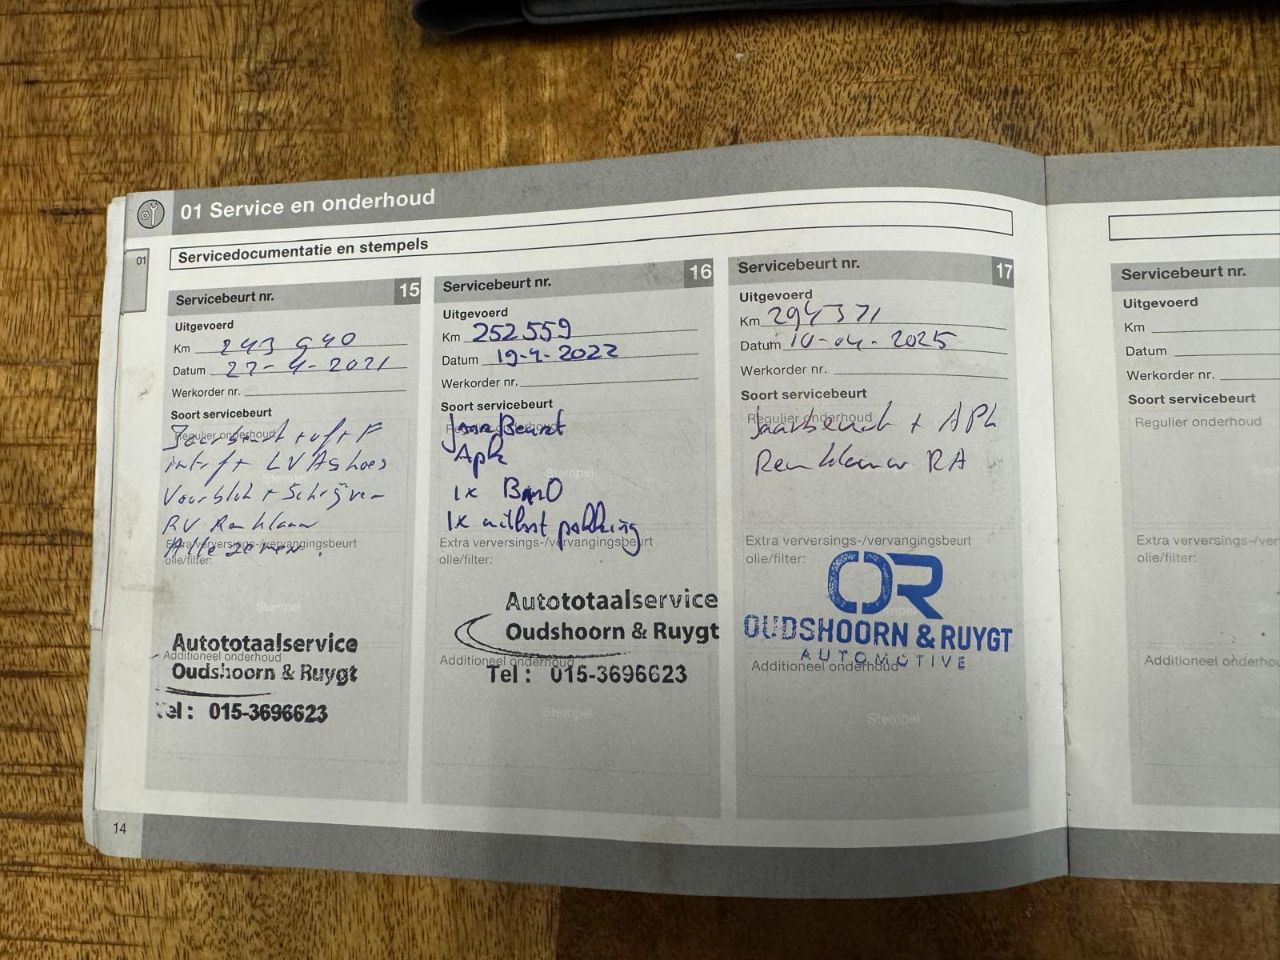 01 Service en onderhoud
01
Servicedocumentatie en stempels
Servicebeurt nr. 15
Uitgevoerd
Km 243 940
Datum 22-4-2021
Werkorder nr.
Soort servicebeurt
Regulier onderhoud
Voorblok + Schrijven
RV Remklauw
Alle zomer.
Extra verversings-/vervangingsbeurt
olie/filter:
Stempel
Autototaalservice
Additioneel onderhoud
Oudshoorn & Ruygt
Tel: 015-3696623
Servicebeurt nr. 16
Uitgevoerd
Km 252 559
Datum 19-4-2022
Werkorder nr.
Soort servicebeurt
Regulier onderhoud
JaarBeurt
Apk
Stempel
1x
1x uitlaat pakking
Extra verversings-/vervangingsbeurt
olie/filter:
Autototaalservice
Oudshoorn & Ruygt
Additioneel onderhoud
Tel: 015-3696623
Stempel
Servicebeurt nr. 17
Uitgevoerd
Km 294371
Datum 10-04-2025
Werkorder nr.
Soort servicebeurt
Regulier onderhoud
Jaarbeurt + APK
Remklauw RA
Extra verversings-/vervangingsbeurt
olie/filter:
OR
Stempel
OUDSHOORN & RUYGT
AUTOMOTIVE
Additioneel onderhoud
Stempel
Servicebeurt nr.
Uitgevoerd
Km
Datum
Werkorder nr.
Soort servicebeurt
Regulier onderhoud
Extra verversings-/v
olie/filter:
Additioneel onderhou
14